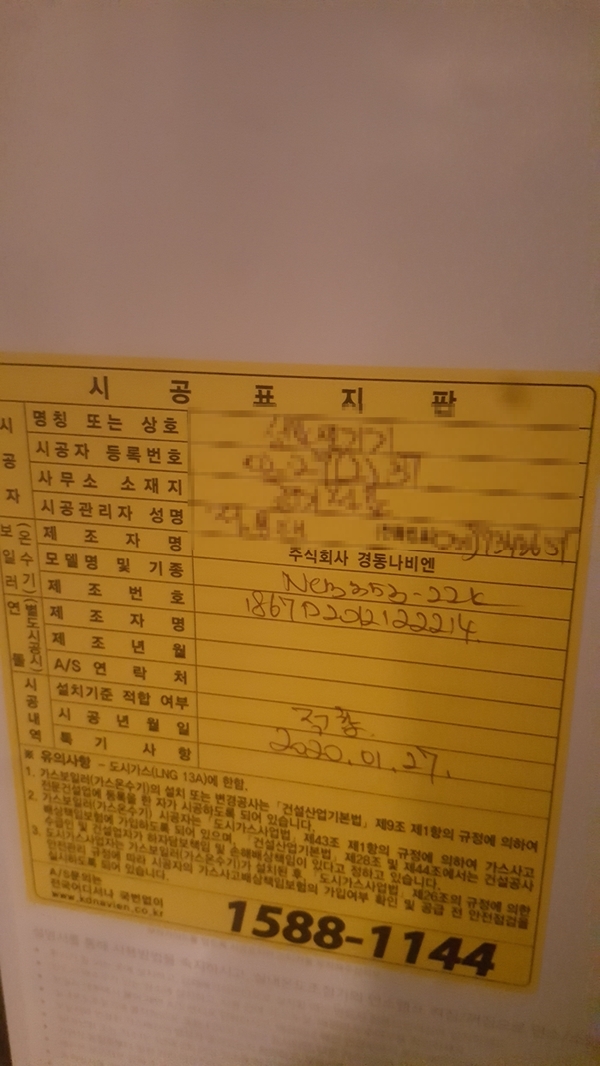 시 공 표 지 판
시 공 자
명칭 또는 상호
시공자 등록번호
사무소 소재지
시공관리자 성명
보일러 (온수기) 연통 (별도시공시)
제 조 자 명 주식회사 경동나비엔
모델명 및 기종 NCB353-22K
제 조 번 호 1867D2012122214
제 조 자 명
제 조 년 월
A/S 연 락 처
시공내역
설치기준 적합 여부 적합
시 공 년 월 일 2020.01.27.
특 기 사 항
※ 유의사항 - 도시가스(LNG 13A)에 한함.
1. 가스보일러(가스온수기)의 설치 또는 변경공사는 「건설산업기본법」 제9조 제1항의 규정에 의하여
전문건설업에 등록을 한 자가 시공하도록 되어 있습니다.
2. 가스보일러(가스온수기) 시공자는 「도시가스사업법」 제43조 제1항의 규정에 의하여 가스사고
배상책임보험에 가입하도록 되어 있으며 「건설산업기본법」 제28조 및 제44조에서는 건설공사
수급인 및 건설업자가 하자담보책임 및 손해배상책임이 있다고 정하고 있습니다.
3. 도시가스사업자는 가스보일러(가스온수기)가 설치된 후 「도시가스사업법」 제26조의 규정에 의한
안전관리 규정에 따라 시공자의 가스사고배상책임보험의 가입여부 확인 및 공급 전 안전점검을
실시하도록 되어 있습니다.
A/S문의는
전국어디서나 국번없이
www.kdnavien.co.kr
1588-1144